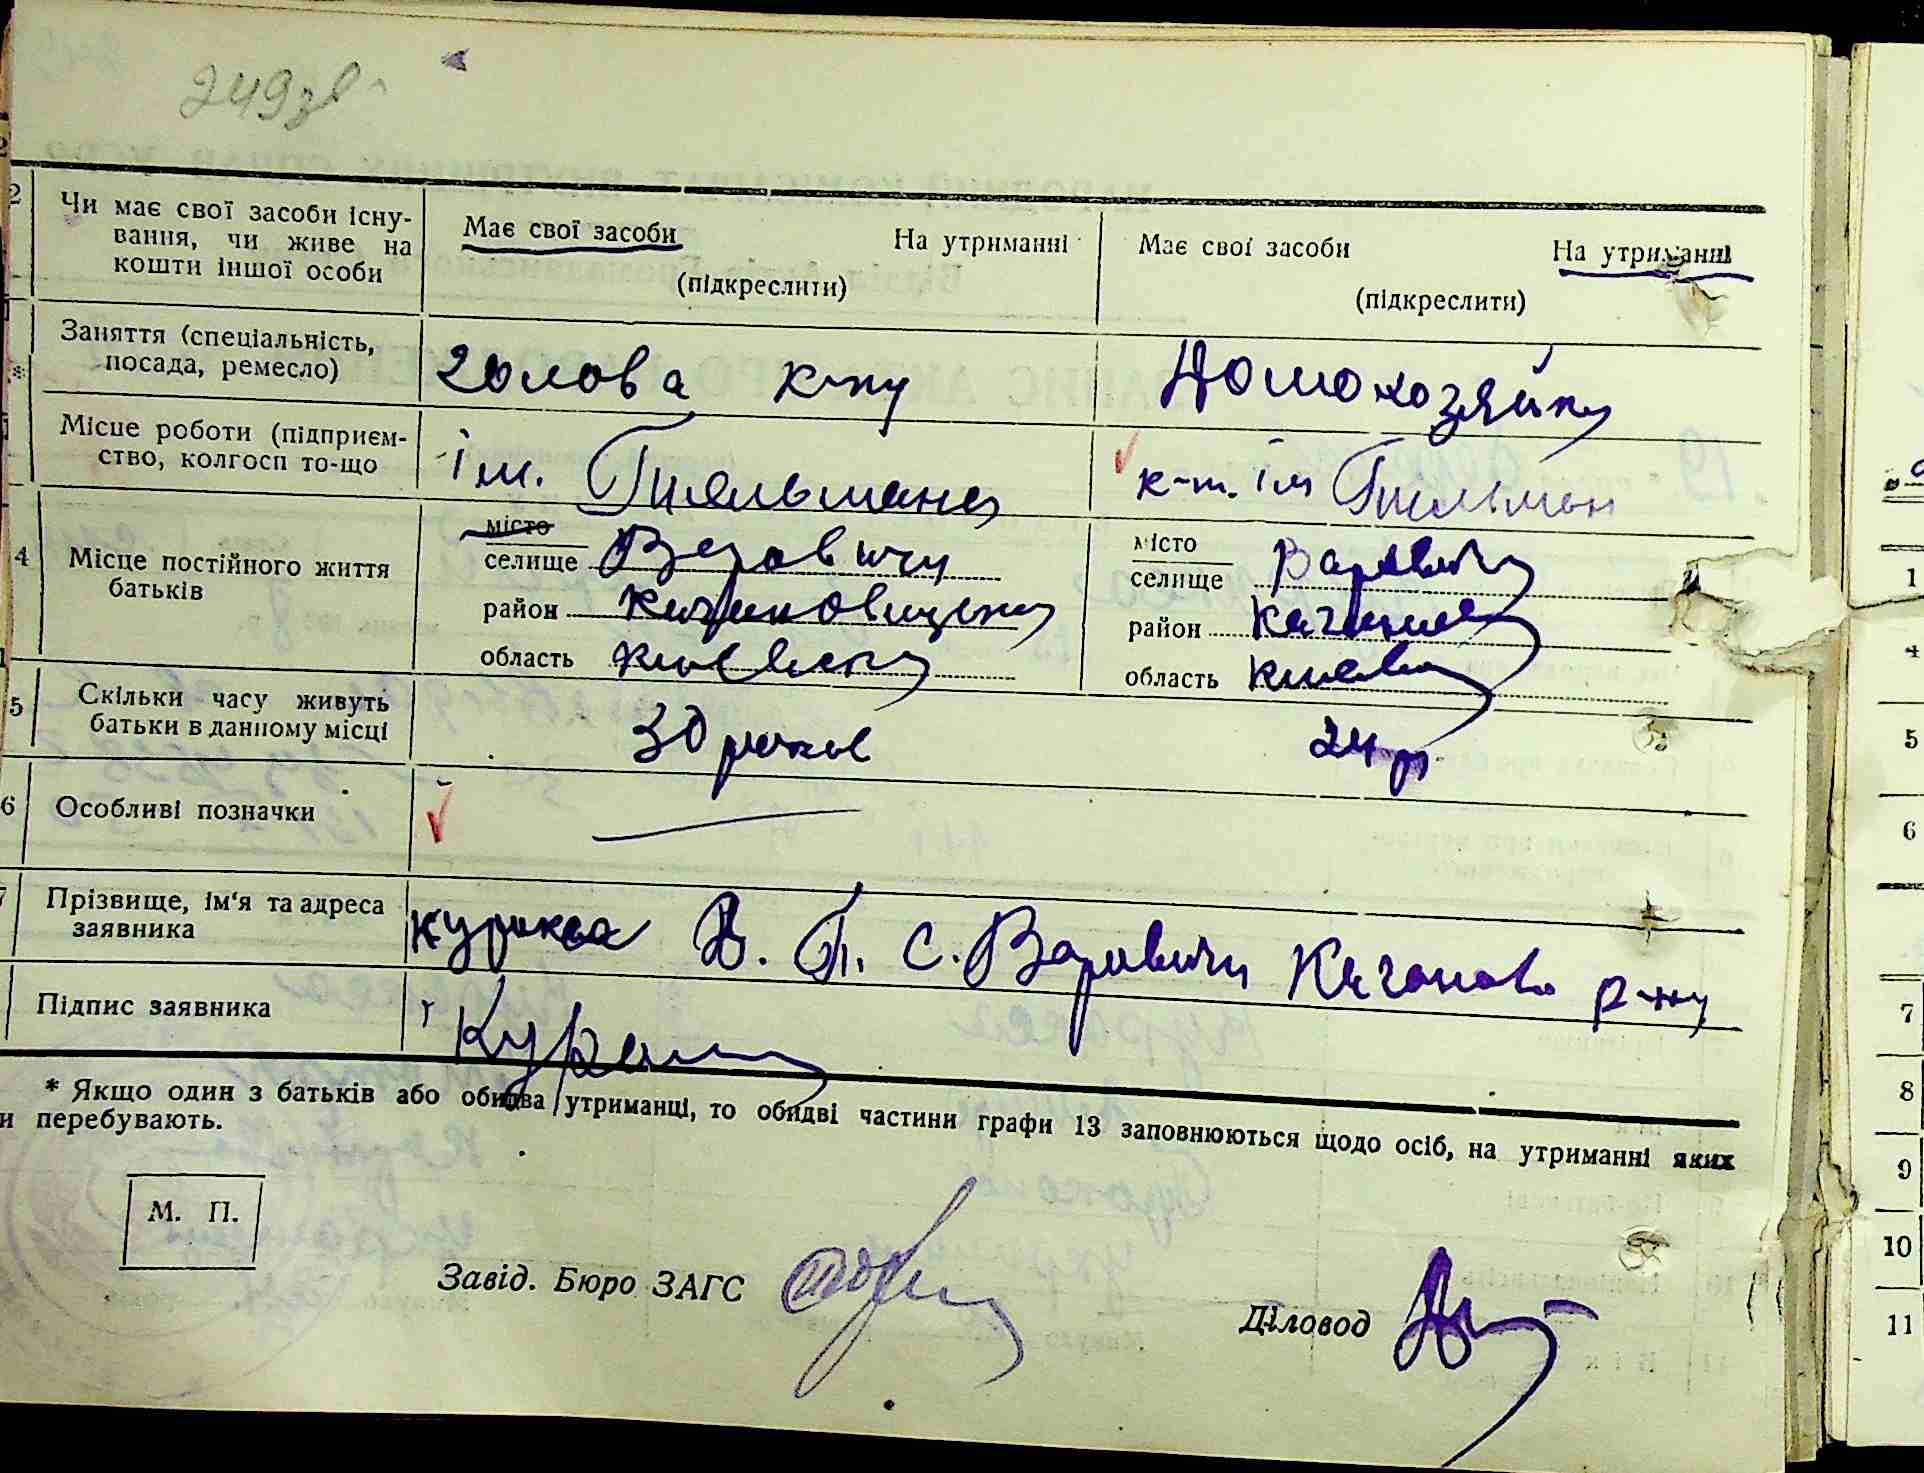 249зв
2 Чи має свої засоби існу-
вання, чи живе на
кошти іншої особи
Має свої засоби На утриманні
(підкреслити)
Має свої засоби На утриманні
(підкреслити)
Заняття (спеціальність,
посада, ремесло)
голова к-пу
Домохозяйка
Місце роботи (підприєм-
ство, колгосп то-що
ім. Тельмана
к-т. ім Тельман
4 Місце постійного життя
батьків
місто
селище Варовичи
район
область Киевска
місто
селище Варовичи
район
область Киевск
5 Скільки часу живуть
батьки в данному місці
30 роков
24 р
6 Особливі позначки
7 Прізвище, ім'я та адреса
заявника
Куракса Д. П. С. Варовичи Каганов р-ну
Підпис заявника
* Якщо один з батьків або обидва утриманці, то обидві частини графи 13 заповнюються щодо осіб, на утриманні яких
и перебувають.
М. П.
Завід. Бюро ЗАГС
Діловод
1
4
5
6
7
8
9
10
11